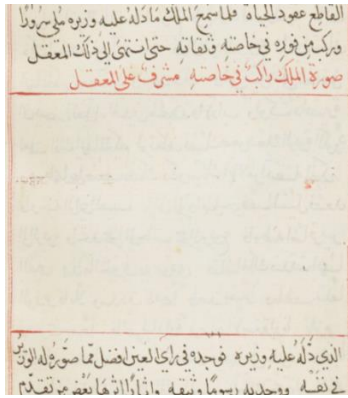 القاطع عقود الحياة فلما سمع الملك ما دله عليه وزيره ملى سرورًا
وركب من فوره في خاصته وثقاته حتى انتهى الى ذلك المعقل
صورة الملك راكب في خاصته مشرف على المعقل
الذي دله عليه وزيره فوجده في راى العين افضل مما صوره له الوزير
في نفسه ووجد به رسومًا وثيقه واثارًا اثرها بعض من تقدم